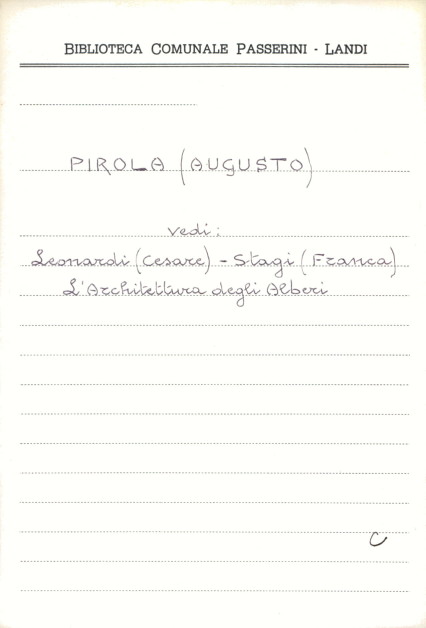 BIBLIOTECA COMUNALE PASSERINI - LANDI
PIROLA (AUGUSTO)
vedi:
Leonardi (Cesare) - Stagi (Franca)
L'Architettura degli Alberi
C